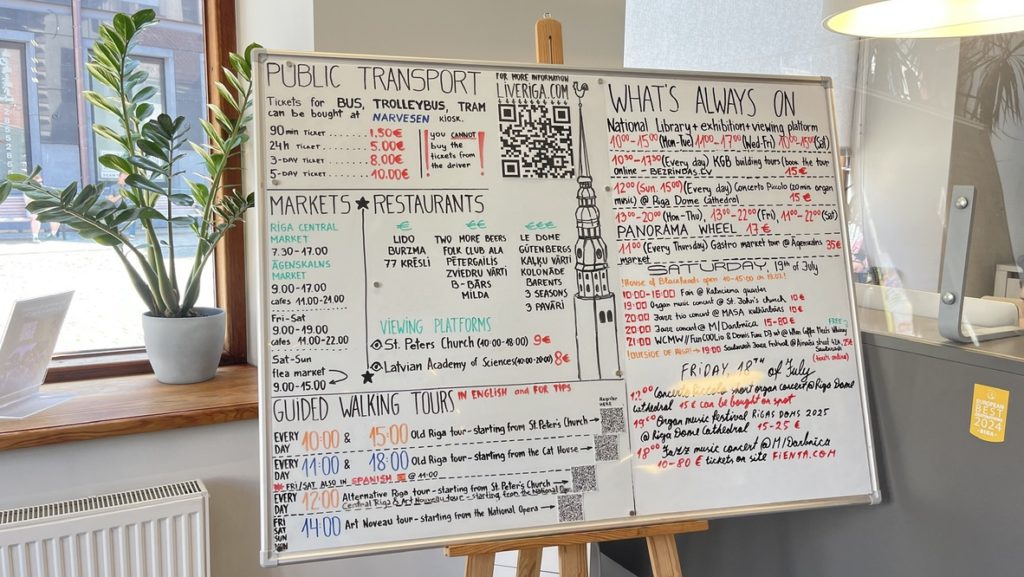 PUBLIC TRANSPORT
Tickets for BUS, TROLLEYBUS, TRAM
can be bought at NARVESEN KIOSK.
90 min TICKET ..... 1.50€
24h TICKET ..... 5.00€
3-DAY TICKET ..... 8.00€
5-DAY TICKET ..... 10.00€
! you CANNOT !
buy the
tickets from
the driver
FOR MORE INFORMATION
LIVERIGA.COM
MARKETS ★ RESTAURANTS
RIGA CENTRAL
MARKET
7.30-17.00
ĀGENSKALNS
MARKET
9.00-17.00
cafes 11.00-21.00
Fri-Sat
9.00-19.00
cafes 11.00-22.00
Sat-Sun
flea market
9.00-15.00
€
LIDO
BURZMA
77 KRĒSLI
€€
TWO MORE BEERS
FOLK CLUB ALA
PĒTERGAILIS
ZVIEDRU VĀRTI
B-BĀRS
MILDA
€€€
LE DOME
GŪTENBERGS
KAĻĶU VĀRTI
KOLONĀDE
BARENTS
3 SEASONS
3 PAVĀRI
VIEWING PLATFORMS
St. Peters Church (10:00-18:00) 9€
Latvian Academy of Sciences (10:00-20:00) 8€
GUIDED WALKING TOURS IN ENGLISH and FOR TIPS
Register
HERE
EVERY DAY 10:00 & 15:00 Old Riga tour - starting from St. Peter's Church
EVERY DAY 11:00 & 18:00 Old Riga tour - starting from the Cat House
FRI/SAT ALSO IN SPANISH @ 11:00
EVERY DAY 12:00 Alternative Riga tour - starting from St. Peter's Church
Central Riga & Art Nouveau tour - starting from the National Opera
FRI SAT SUN 14:00 Art Noveau tour - starting from the National Opera
WHAT'S ALWAYS ON
National Library + exhibition + viewing platform
10⁰⁰-15⁰⁰ (Mon-Tue) 11⁰⁰-17⁰⁰ (Wed-Fri) 10⁰⁰-15⁰⁰ (Sat)
10³⁰-17³⁰ (Every day) KGB building tours (book the tour
online - BEZRINDAS.LV 15€
12⁰⁰ (Sun. 15⁰⁰) (Every day) Concerto Piccolo (20min organ
music) @ Riga Dome Cathedral 15€
13⁰⁰-20⁰⁰ (Mon-Thu), 13⁰⁰-22⁰⁰ (Fri) 11⁰⁰-22⁰⁰ (Sat)
PANORAMA WHEEL 17€
11⁰⁰ (Every Thursday) Gastro market tour @ Āgenskalns
market 35€
SATURDAY 19th of July
!House of Blackheads open 10-15:00 on 19.07.!
10:00-16:00 Fair @ Kalnciema quarter
19:00 Organ music concert @ St. John's church 10€
20:00 Jazz trio concert @ MASA kultūrbārs 10€
20:00 Jazz concert @ M/Darbnīca 15-80€
21:00 WCMW/FunCOOLio & Dennis Fun DJ set @ When Coffee Meets Whiskey FREE
!OUTSIDE OF RIGA! → 19:00 Saulkrasti Jazz Festival @ Ainažu street 42a, 25€
Saulkrasti
FRIDAY 18TH of July
12⁰⁰ Concerto Piccolo short organ concert @ Riga Dome
Cathedral 15€ can be bought on spot
19⁰⁰ Organ music festival RĪGAS DOMS 2025
@ Riga Dome Cathedral 15-25€
18⁰⁰ Jazz music concert @ M/Darbnīca
10-80€ tickets on site FIENTA.COM
EUROPEAN
BEST
2024